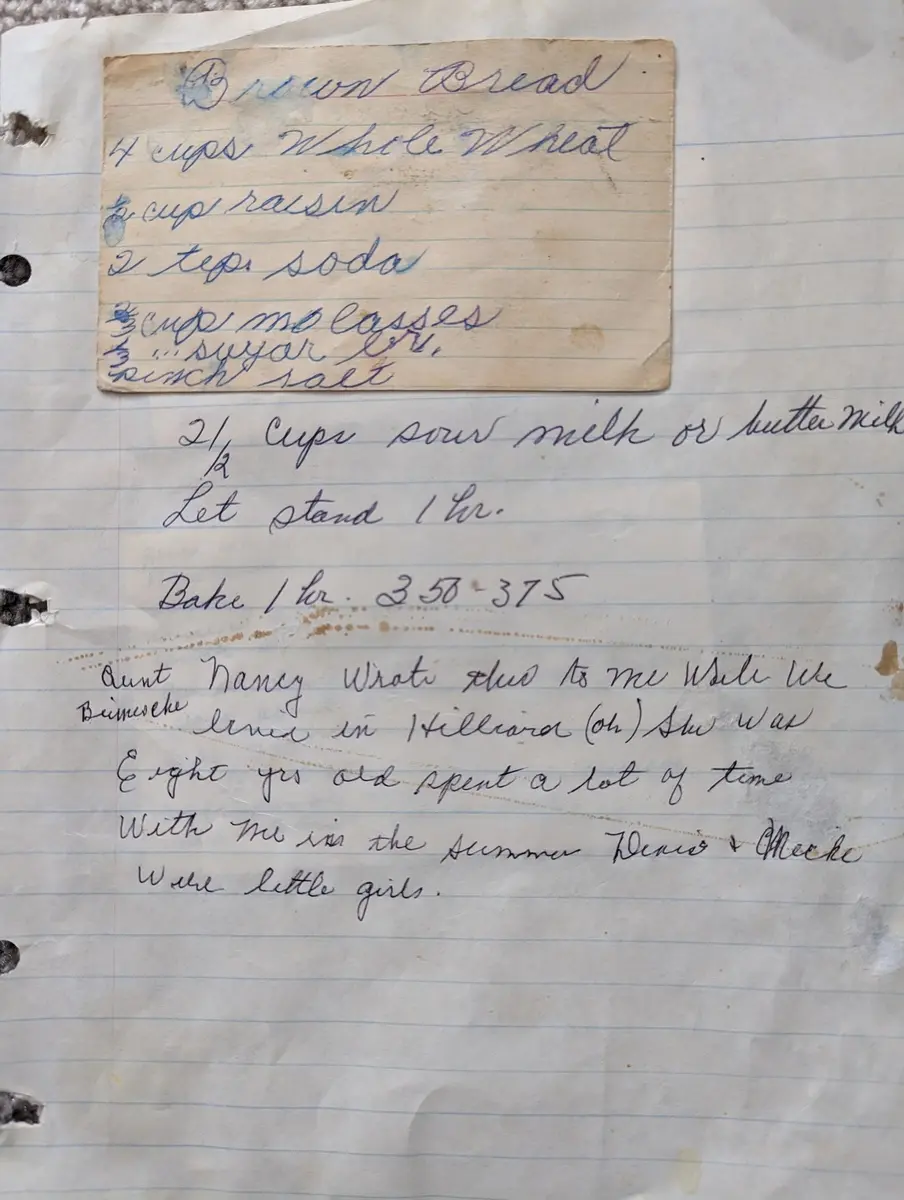 Brown Bread
4 cups Whole Wheat
1/2 cup raisin
2 tsp. soda
2/3 cup molasses
1/3 ... sugar br.
pinch salt
2 1/2 cups sour milk or butter milk
Let stand 1 hr.
Bake 1 hr. 350-375
Aunt Nancy Wrote this to me While We
lived in Hilliard (oh) She Was
Eight yrs old spent a lot of time
With me in the summer &
Were little girls.